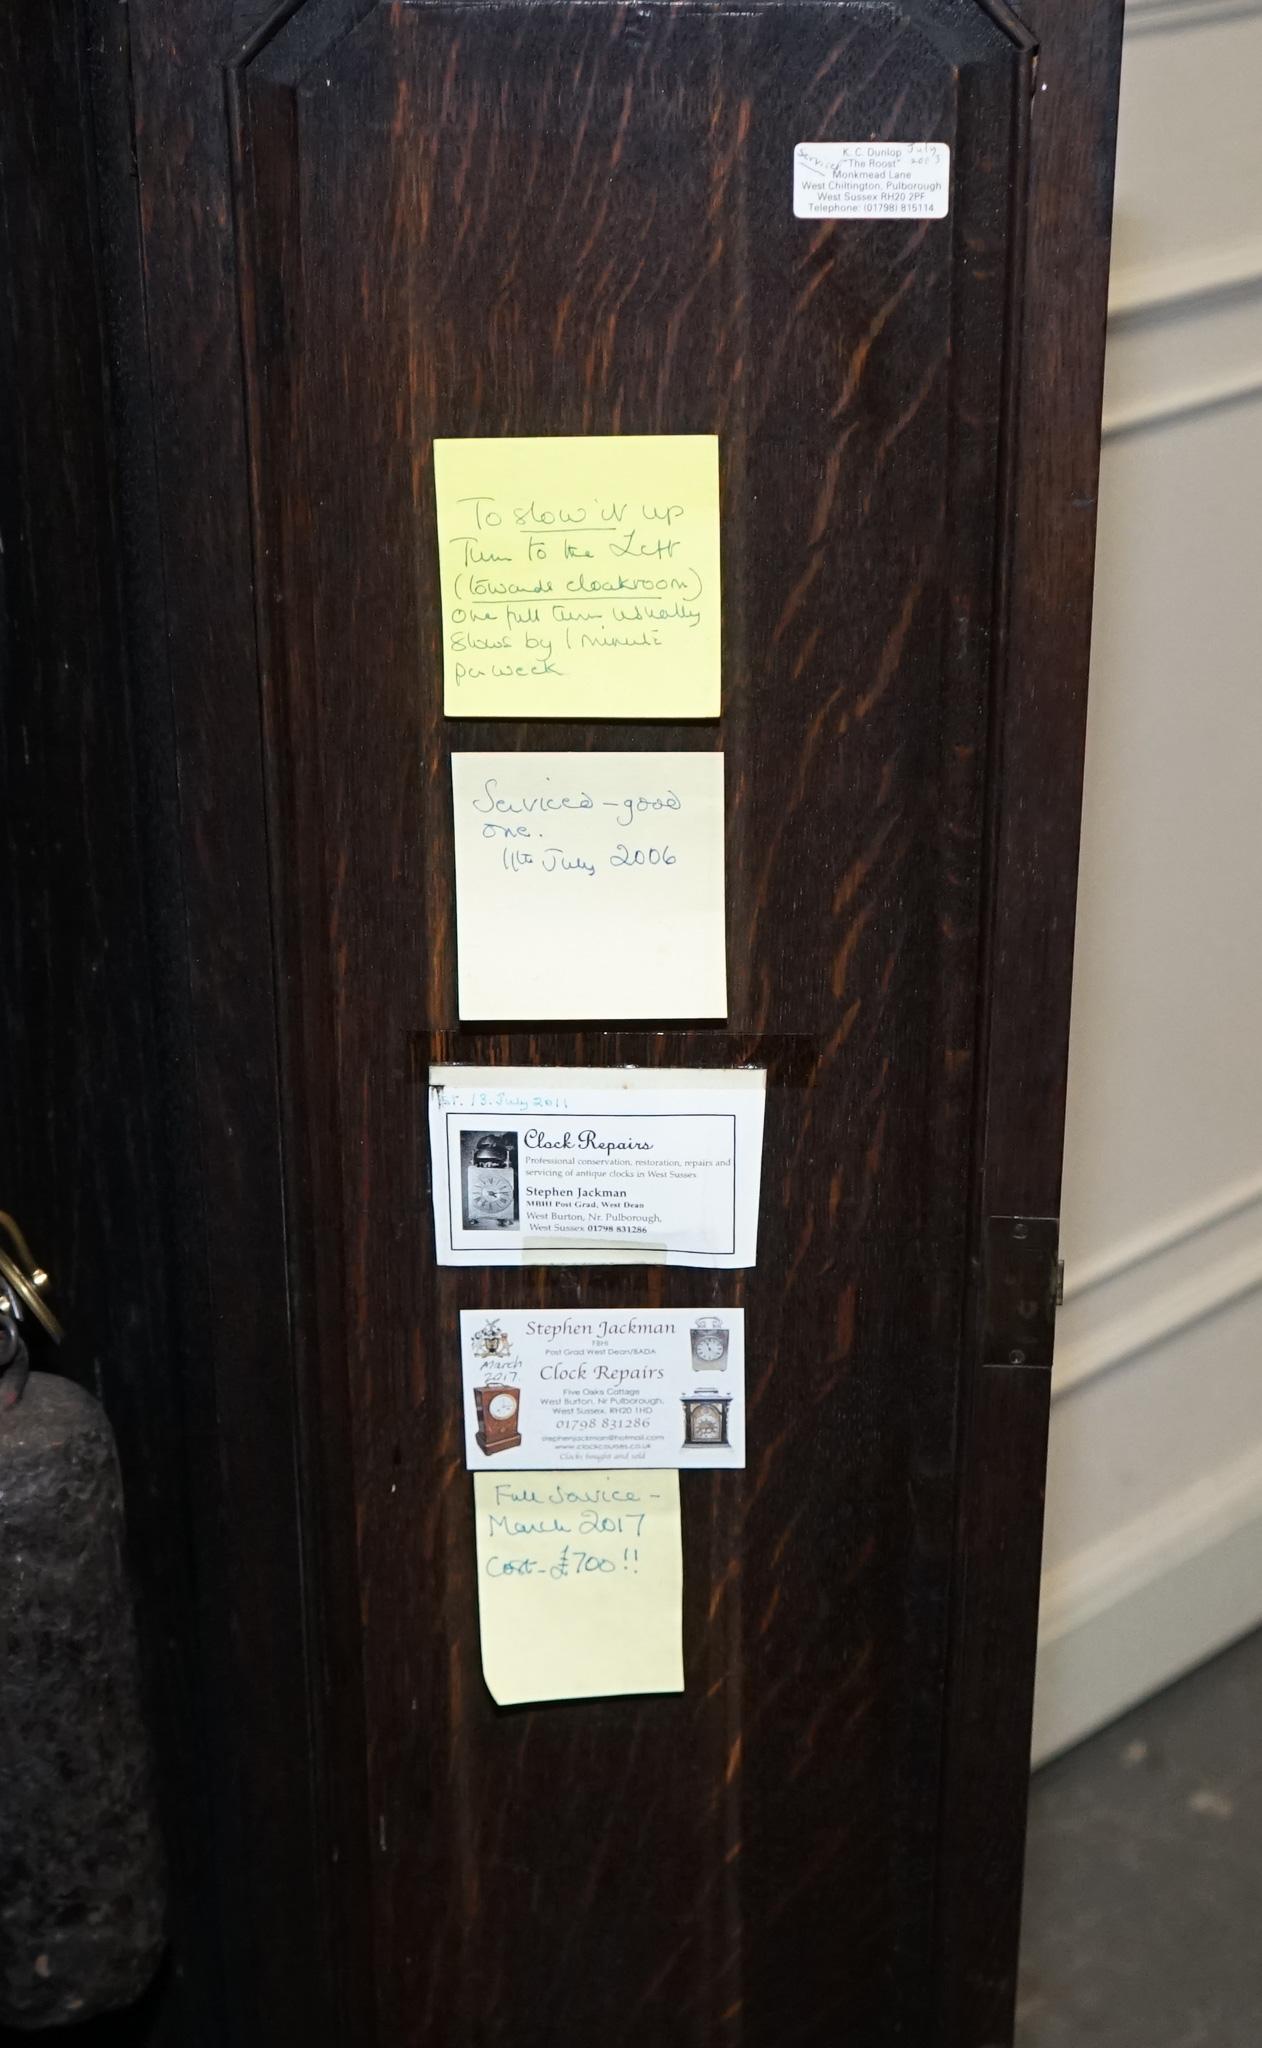 K. C. Dunlop July
Service "The Roost" 2003
Monkmead Lane
West Chiltington, Pulborough
West Sussex RH20 2PF
Telephone: (01798) 815114
To slow it up
Turn to the Left
(towards cloakroom)
One full turn usually
slows by 1 minute
per week
Serviced – good
one.
11th July 2006
13. July 2011
Clock Repairs
Professional conservation, restoration, repairs and
servicing of antique clocks in West Sussex
Stephen Jackman
MBHI Post Grad, West Dean
West Burton, Nr. Pulborough,
West Sussex 01798 831286
Stephen Jackman
FBHI
Post Grad West Dean/BADA
March
2017.
Clock Repairs
Five Oaks Cottage
West Burton, Nr Pulborough,
West Sussex, RH20 1HD
01798 831286
stephenjackman@hotmail.com
www.clockcourses.co.uk
Clocks bought and sold
Full Service –
March 2017
Cost – £700!!